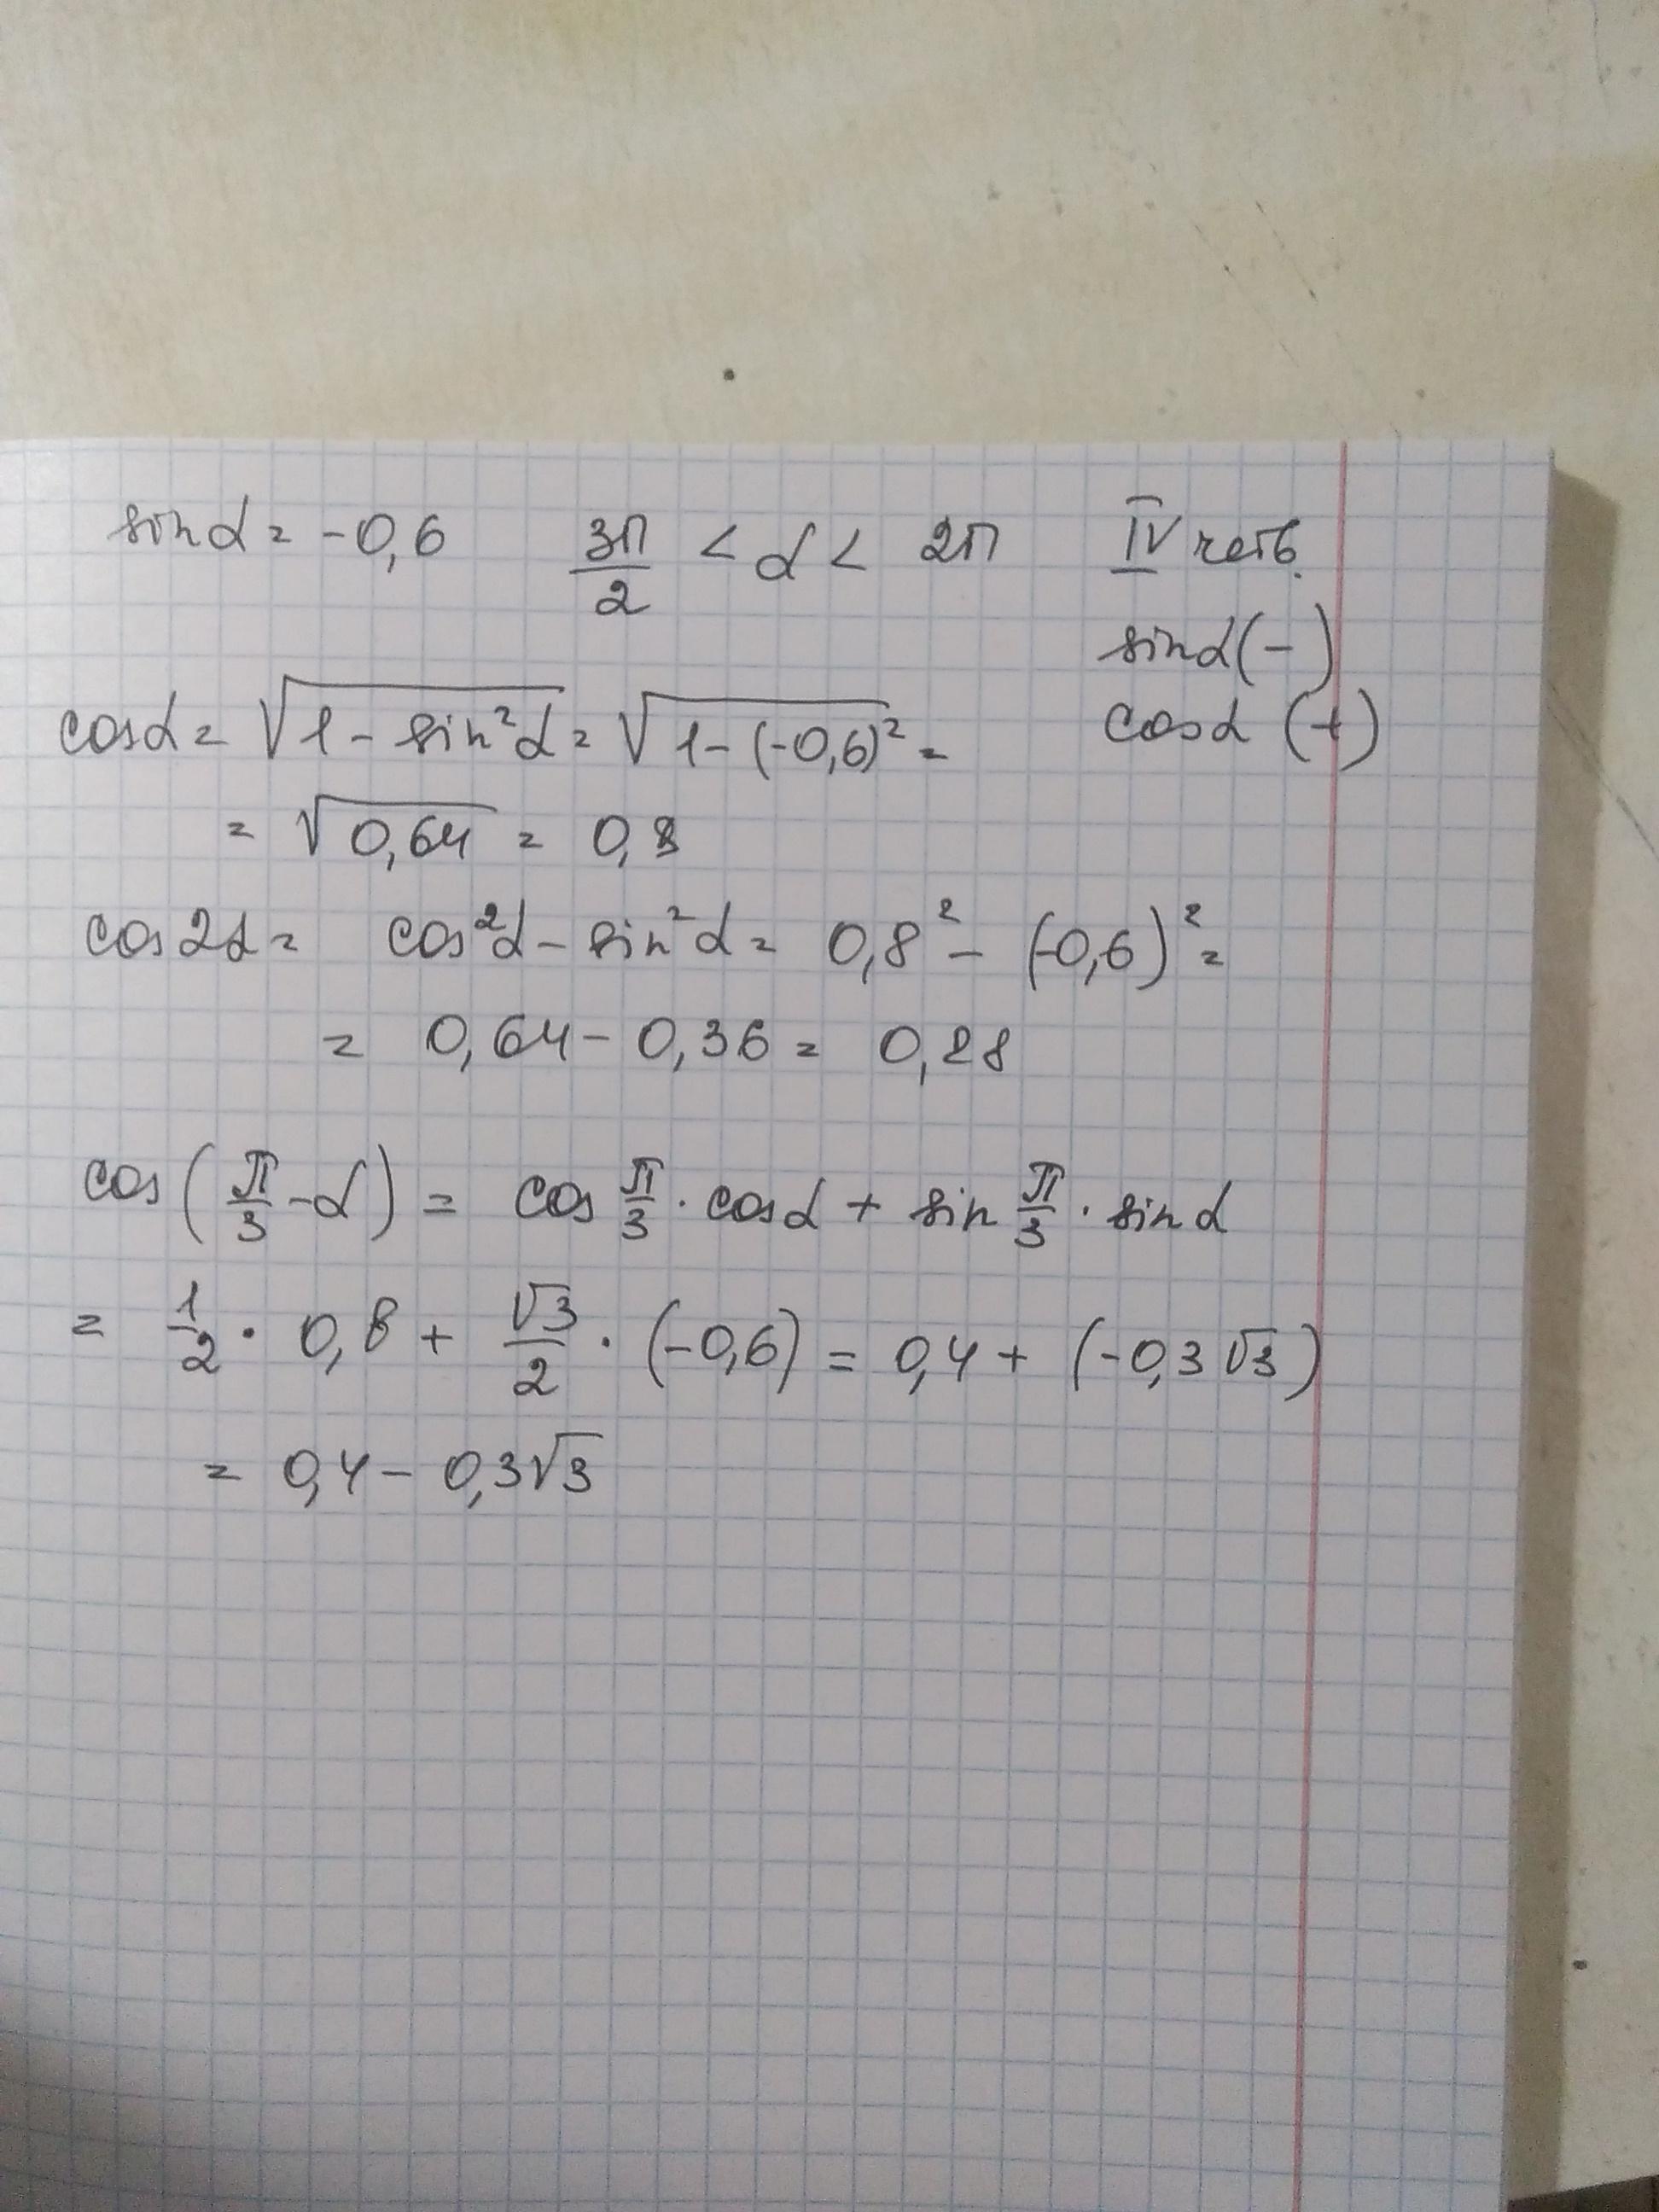 sinα = -0,6 3π/2 < α < 2π IV четв.
sinα(-)
cosα = √(1 - sin²α) = √(1-(-0,6)²) = cosα (+)
= √0,64 = 0,8
cos2α = cos²α - sin²α = 0,8² - (-0,6)² =
= 0,64 - 0,36 = 0,28
cos(π/3 - α) = cos π/3 · cosα + sin π/3 · sinα
= 1/2 · 0,8 + √3/2 · (-0,6) = 0,4 + (-0,3√3)
= 0,4 - 0,3√3